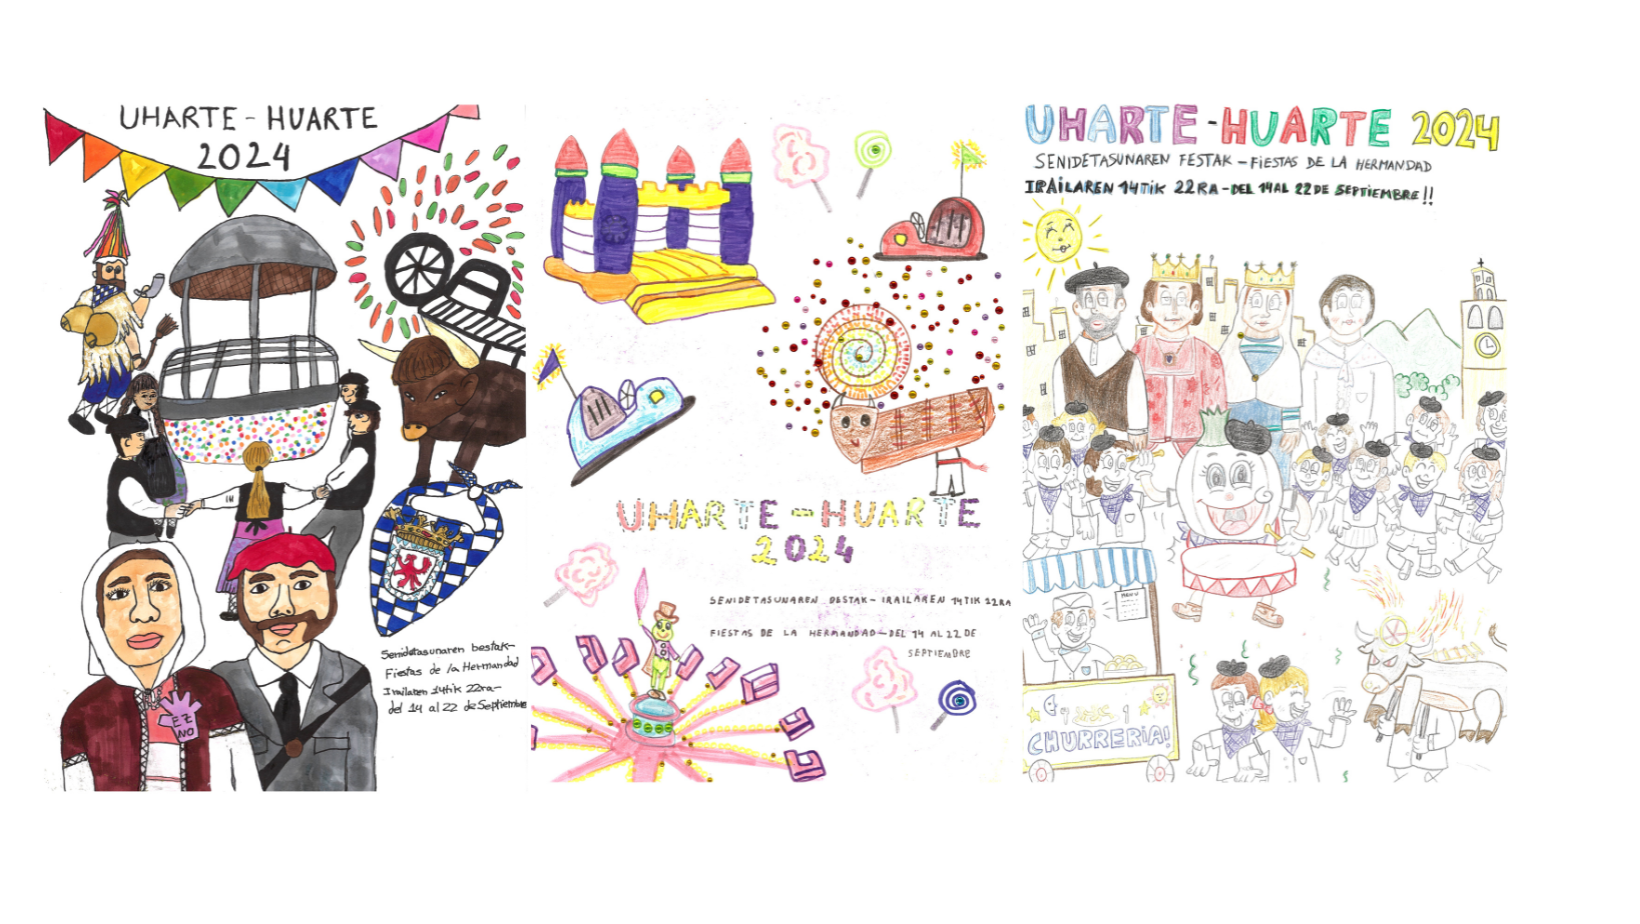 UHARTE - HUARTE
2024
EZ
NO
Senidetasunaren bestak-
Fiestas de la Hermandad
Irailaren 14tik 22ra-
del 14 al 22 de Septiembre
UHARTE-HUARTE
2024
SENIDETASUNAREN BESTAK- IRAILAREN 14TIK 22RA
FIESTAS DE LA HERMANDAD-DEL 14 AL 22 DE
SEPTIEMBRE
UHARTE-HUARTE 2024
SENIDETASUNAREN FESTAK-FIESTAS DE LA HERMANDAD
IRAILAREN 14TIK 22RA-DEL 14 AL 22 DE SEPTIEMBRE!!
MENU
CHURRERIA!